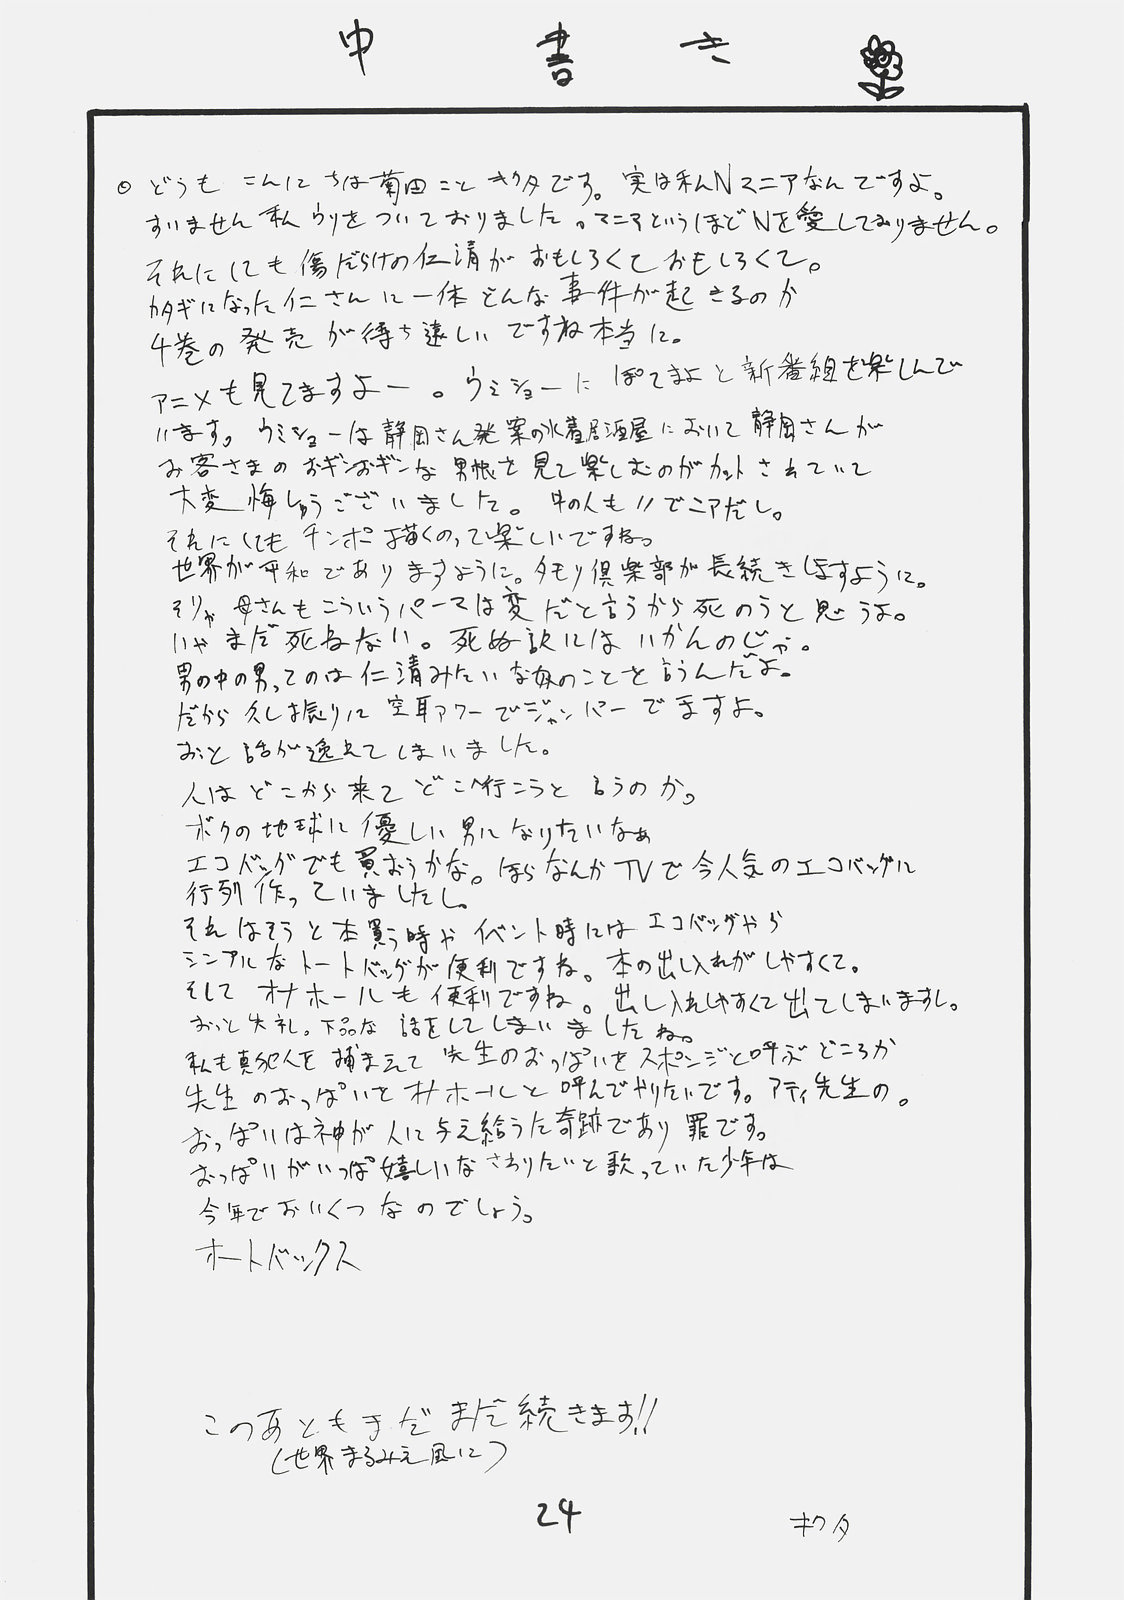 中書き
○どうも こんにちは菊田こと キクタです。実は私Nマニアなんですよ。
すいません 私 ウソをついておりました。マニアというほどNを愛しておりません。
それにしても 傷だらけの仁清が おもしろくておもしろくて。
カタギになった仁さんに一体どんな事件が起きるのか
4巻の発売が待ち遠しいですね本当に。
アニメも見てますよー。ウミショーに ぽてまよと新番組を楽しんで
います。ウミショーは静岡さん発案の水着居酒屋において静岡さんが
お客さまのおギンおギンな男根を見て楽しむのがカットされていて
大変悔しゅうございました。牛の人も!!でニアだし。
それにしてもチンポ描くのって楽しいですね。
世界が平和でありますように。タモリ倶楽部が長続きしますように。
そりゃ母さんもこういうパーマは変だと言うから死のうと思うよ。
いやまだ死ねない。死ぬ訳にはいかんのじゃ。
男の中の男ってのは仁清みたいな奴のことを言うんだよ。
だから久し振りに空耳アワーでジャンパーでますよ。
おっと話が逸れてしまいました。
人はどこから来てどこへ行こうと言うのか。
ボクの地球に優しい男になりたいなぁ
エコバッグでも買おうかな。ほらなんかTVで今人気のエコバッグに
行列作っていましたし。
それはそうと本買う時やイベント時にはエコバッグやら
シンプルなトートバッグが便利ですね。本の出し入れがしやすくて。
そしてオナホールも便利ですね。出し入れしやすくて出てしまいますし。
おっと失礼。下品な話をしてしまいましたね。
私も真犯人を捕まえて先生のおっぱいをスポンジと呼ぶどころか
先生のおっぱいをオナホールと呼んでやりたいです。アティ先生の。
おっぱいは神が人に与え給うた奇跡であり罪です。
おっぱいがいっぱ嬉しいなさわりたいと歌っていた少年は
今年でおいくつなのでしょう。
オートバックス
このあともまだまだ続きます!!
(世界まるみえ風に)
24
キクタ